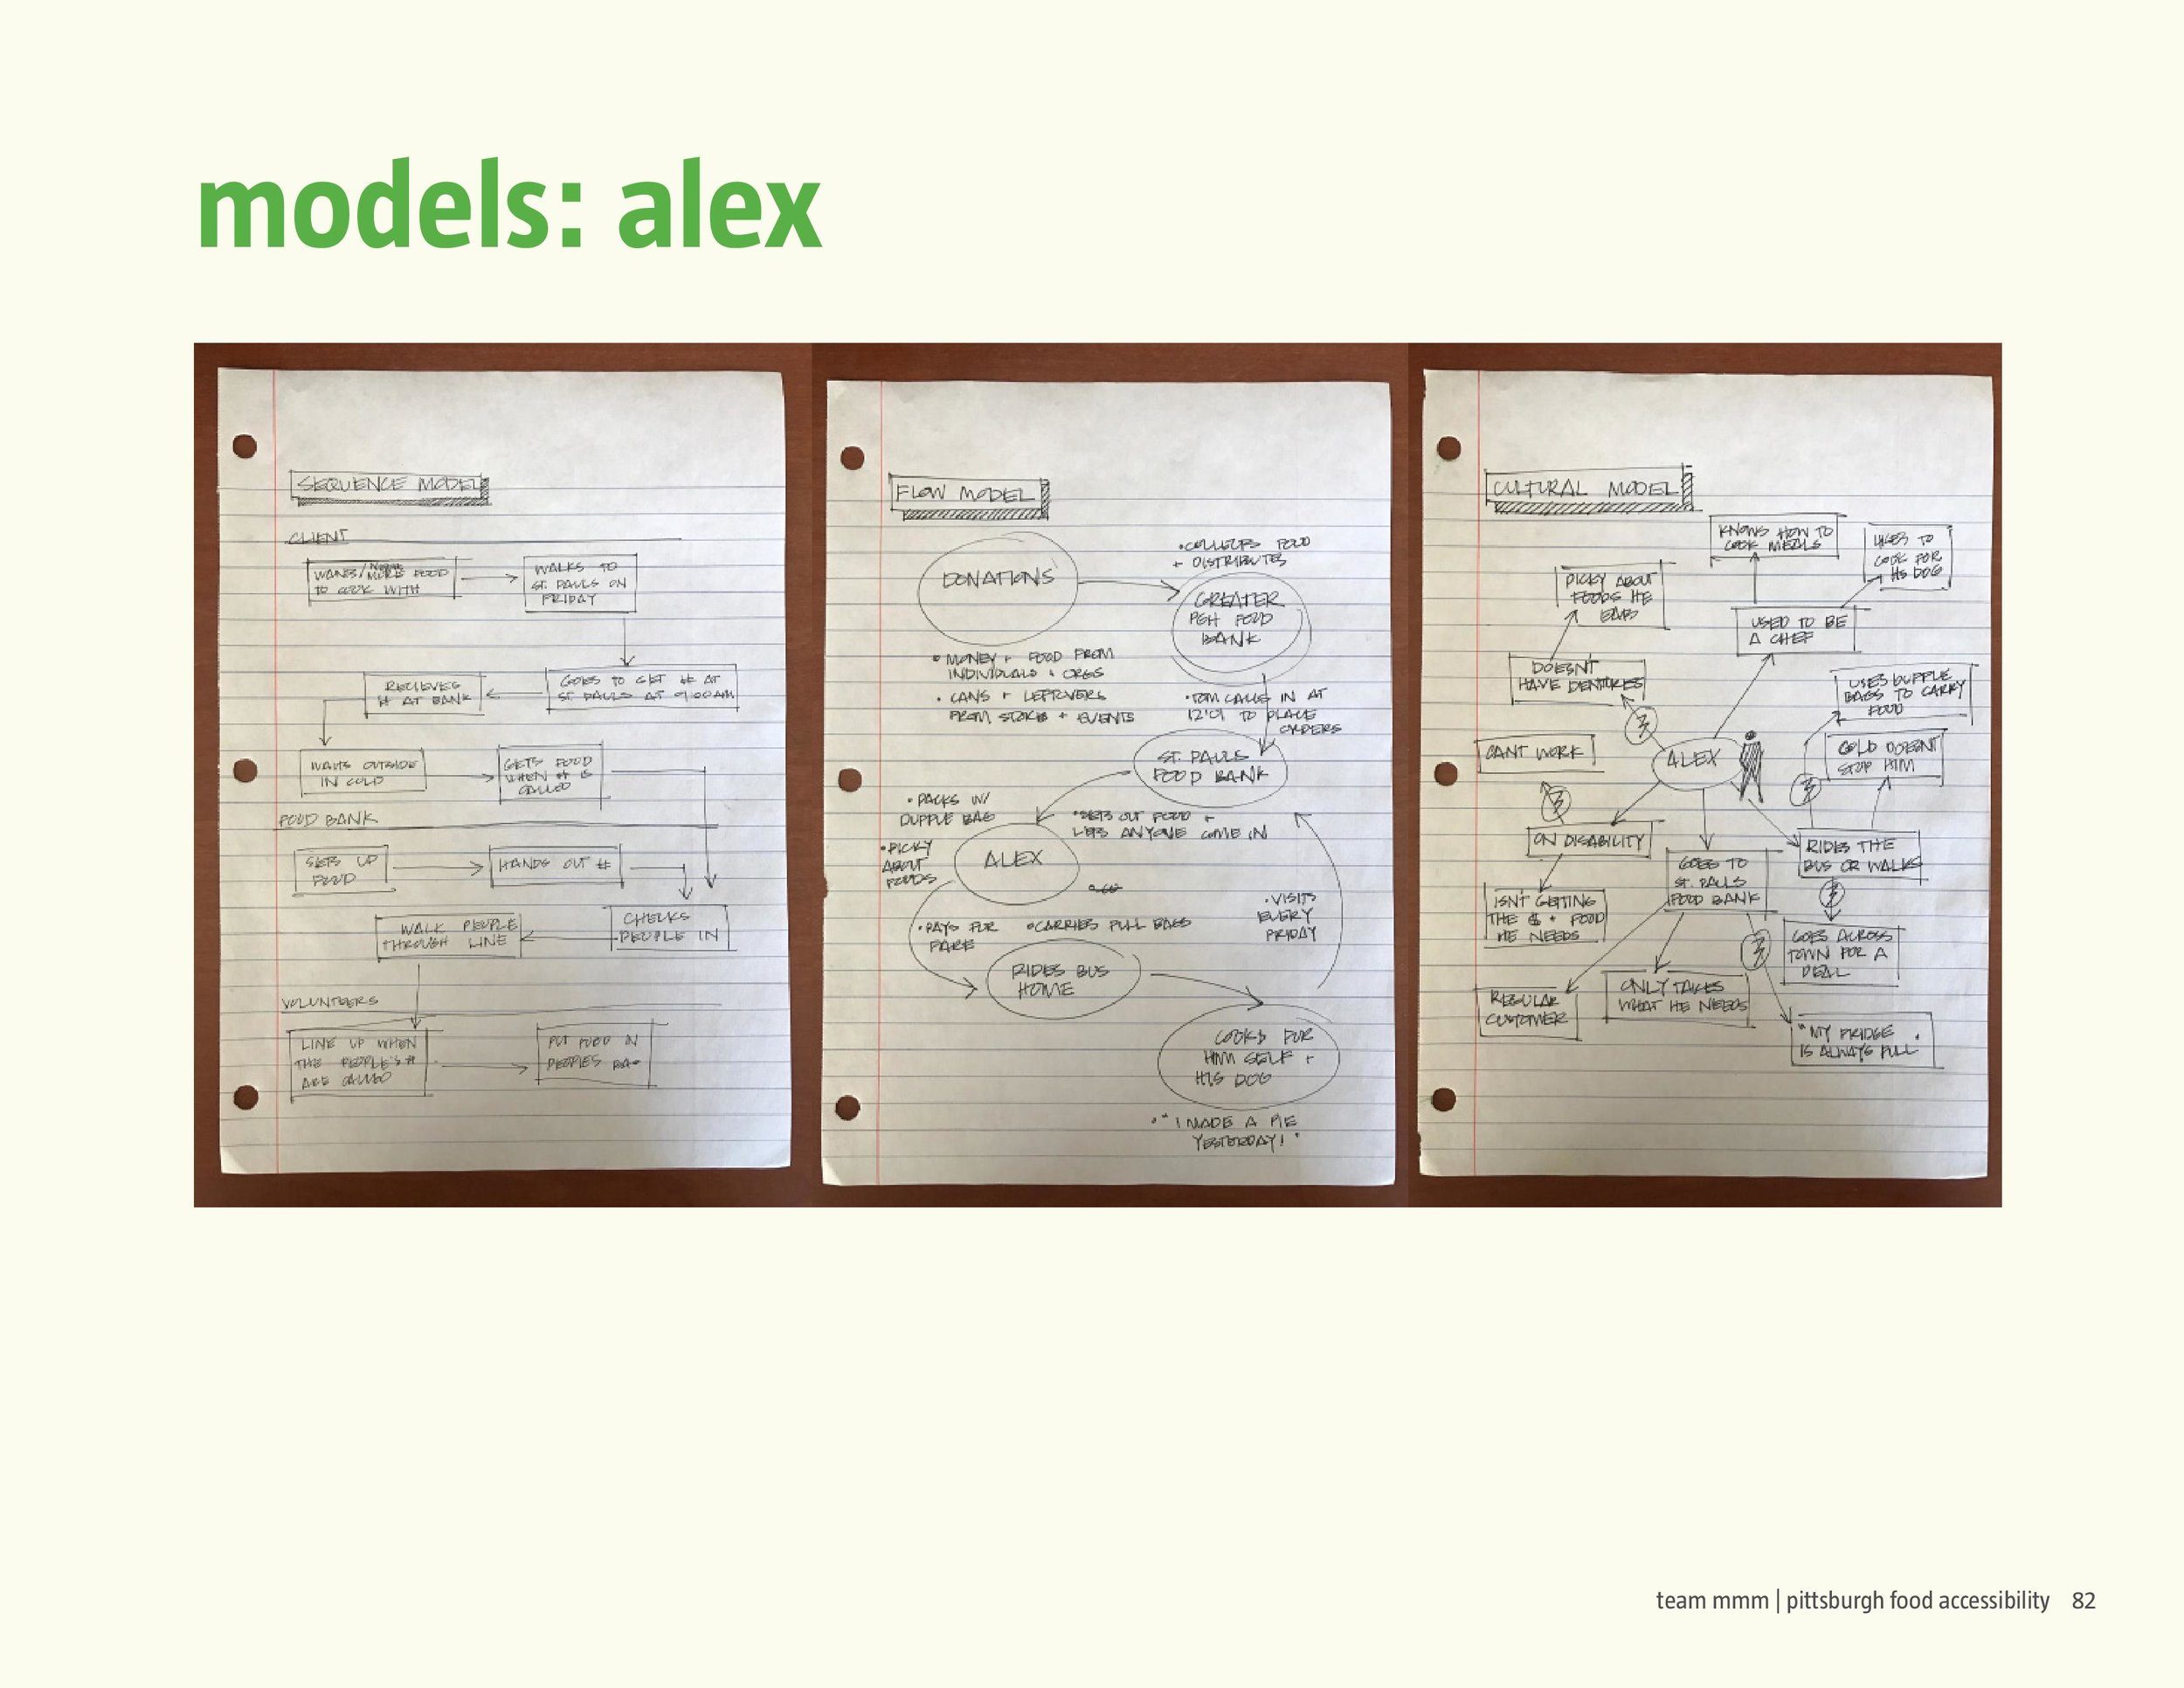 models: alex
SEQUENCE MODEL
CLIENT
WANTS/NEEDS
MORE FOOD
TO COOK WITH
WALKS TO
ST. PAULS ON
FRIDAY
GOES TO GET # AT
ST. PAULS AT 9:00AM
RECIEVES
# AT BANK
WAITS OUTSIDE
IN COLD
GETS FOOD
WHEN # IS
CALLED
FOOD BANK
SETS UP
FOOD
HANDS OUT #
CHECKS
PEOPLE IN
WALK PEOPLE
THROUGH LINE
VOLUNTEERS
LINE UP WHEN
THE PEOPLE'S #
ARE CALLED
PUT FOOD IN
PEOPLES BAG
FLOW MODEL
DONATIONS
• MONEY + FOOD FROM
INDIVIDUALS + ORGS
• CANS + LEFTOVERS
FROM STORES + EVENTS
• COLLECTS FOOD
+ DISTRIBUTES
GREATER
PGH FOOD
BANK
• TOM CALLS IN AT
12:01 TO PLACE
ORDERS
ST. PAULS
FOOD BANK
• SETS OUT FOOD +
LETS ANYONE COME IN
• PACKS IN/
DUFFLE BAG
• PICKY
ABOUT
FOODS
ALEX
• PAYS FOR
FARE
• CARRIES FULL BAGS
• VISITS
EVERY
FRIDAY
RIDES BUS
HOME
COOKS FOR
HIM SELF +
HIS DOG
• "I MADE A PIE
YESTERDAY!"
CULTURAL MODEL
KNOWS HOW TO
COOK MEALS
LIKES TO
COOK FOR
HIS DOG
PICKY ABOUT
FOODS HE
EATS
USED TO BE
A CHEF
DOESN'T
HAVE DENTURES
USES DUFFLE
BAGS TO CARRY
FOOD
CANT WORK
ALEX
COLD DOESN'T
STOP HIM
ON DISABILITY
GOES TO
ST. PAULS
FOOD BANK
RIDES THE
BUS OR WALKS
ISN'T GETTING
THE $ + FOOD
HE NEEDS
GOES ACROSS
TOWN FOR A
DEAL
REGULAR
CUSTOMER
ONLY TAKES
WHAT HE NEEDS
"MY FRIDGE
IS ALWAYS FULL.
team mmm | pittsburgh food accessibility 82